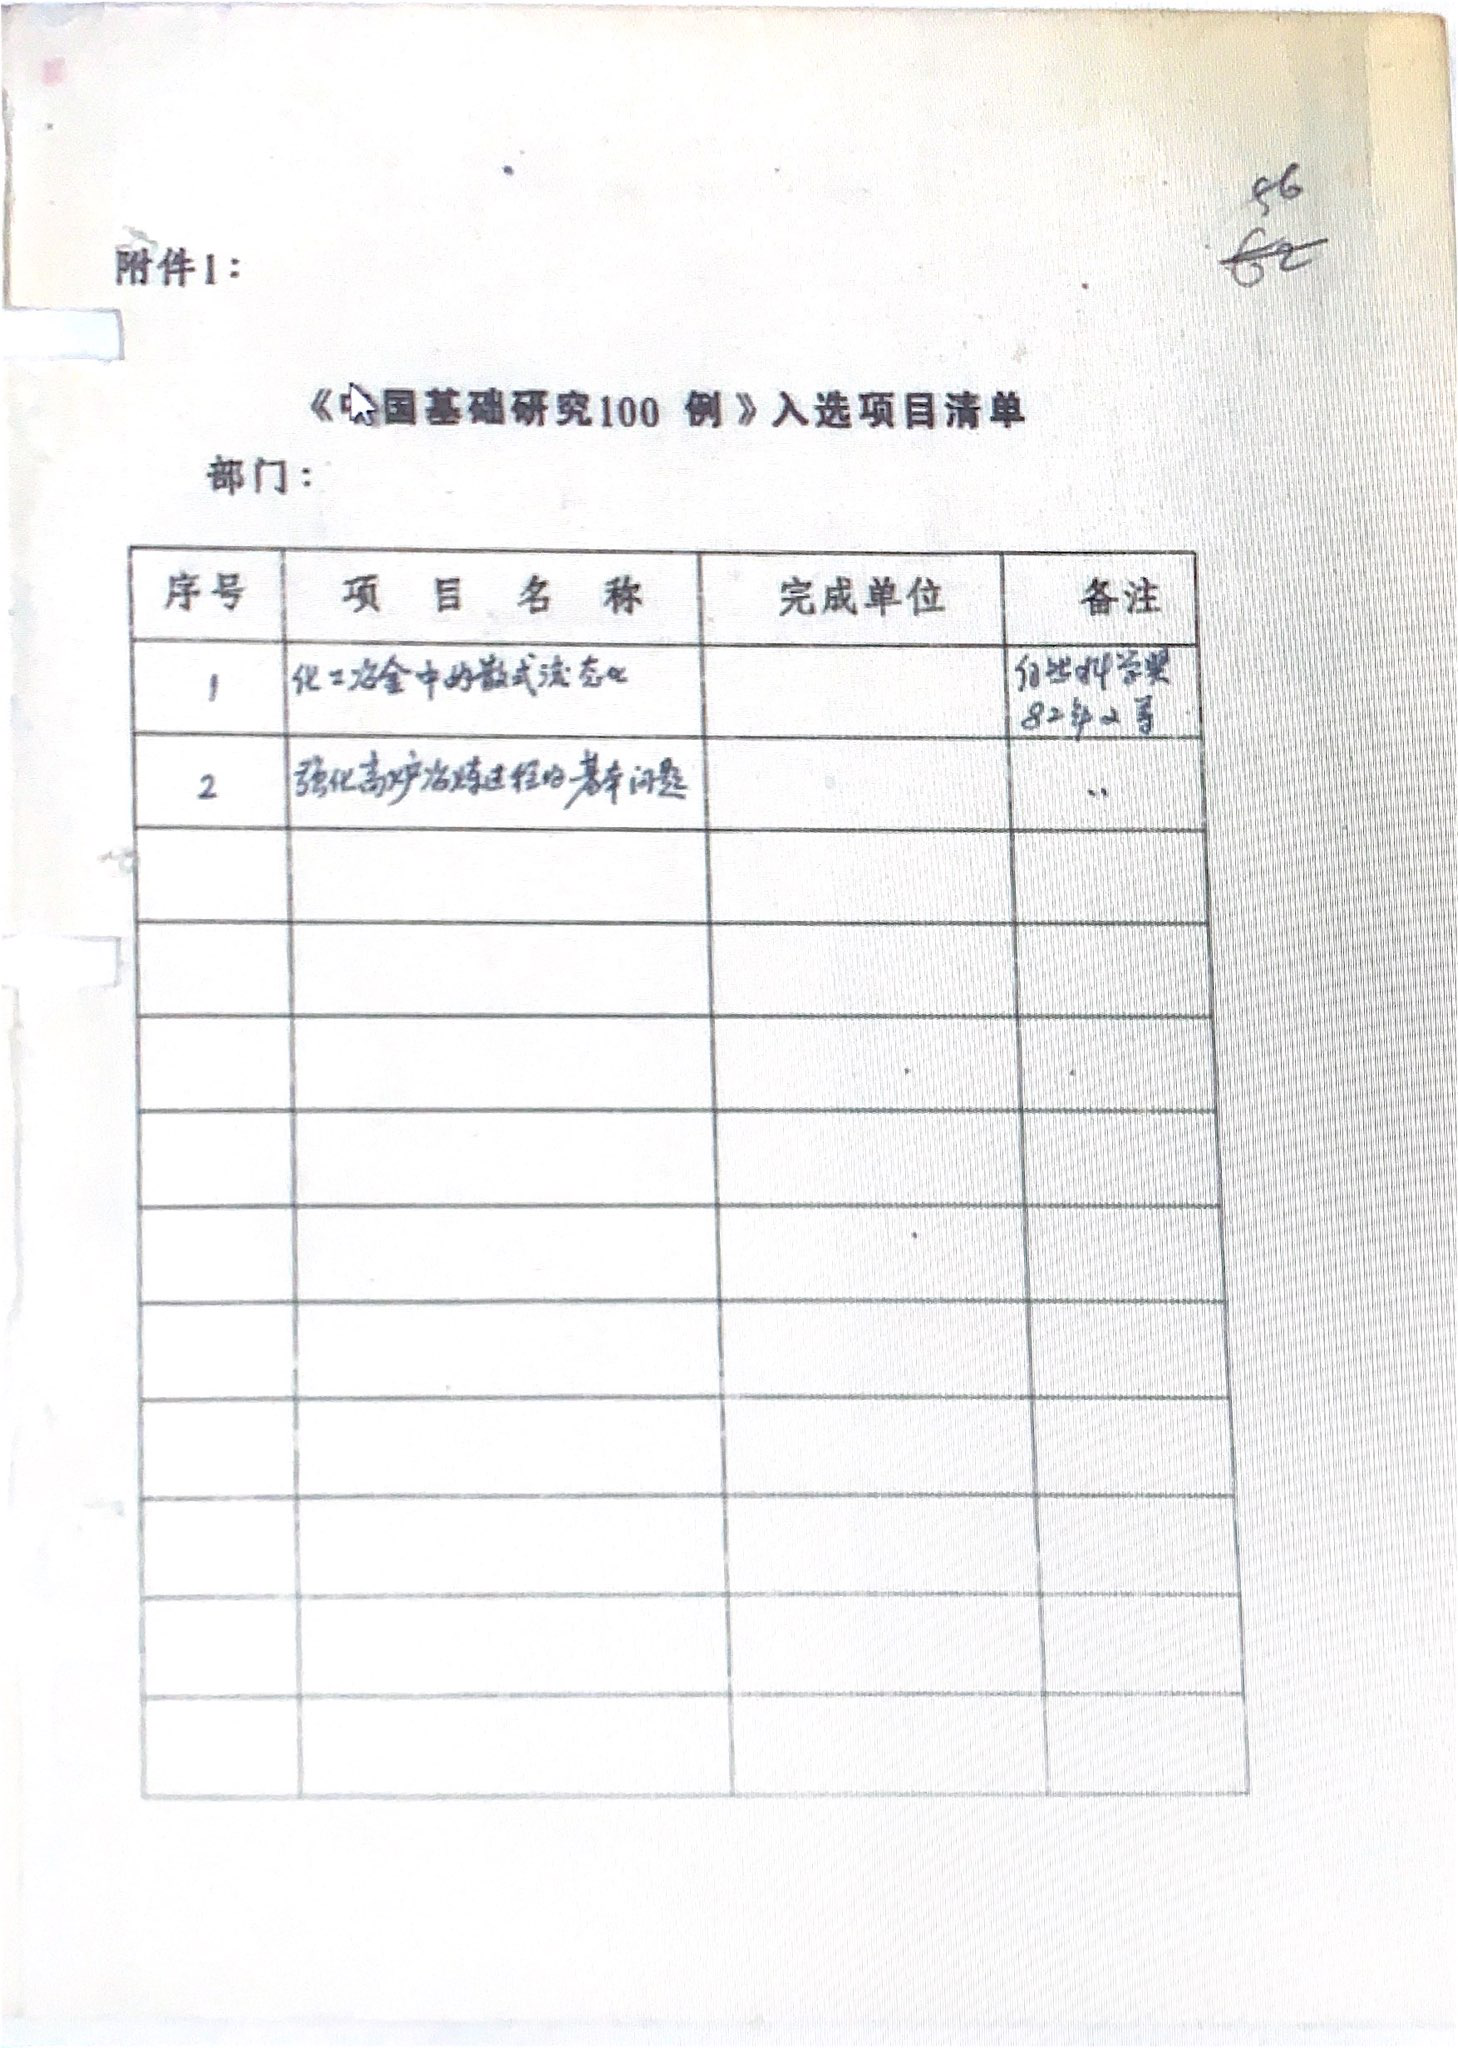 56
62
附件1：
《中国基础研究100 例》入选项目清单
部门：
序号 项 目 名 称 完成单位 备注
1 化工冶金中的散式流态化 自然科学奖
82年2等
2 强化高炉冶炼过程的基本问题 〃